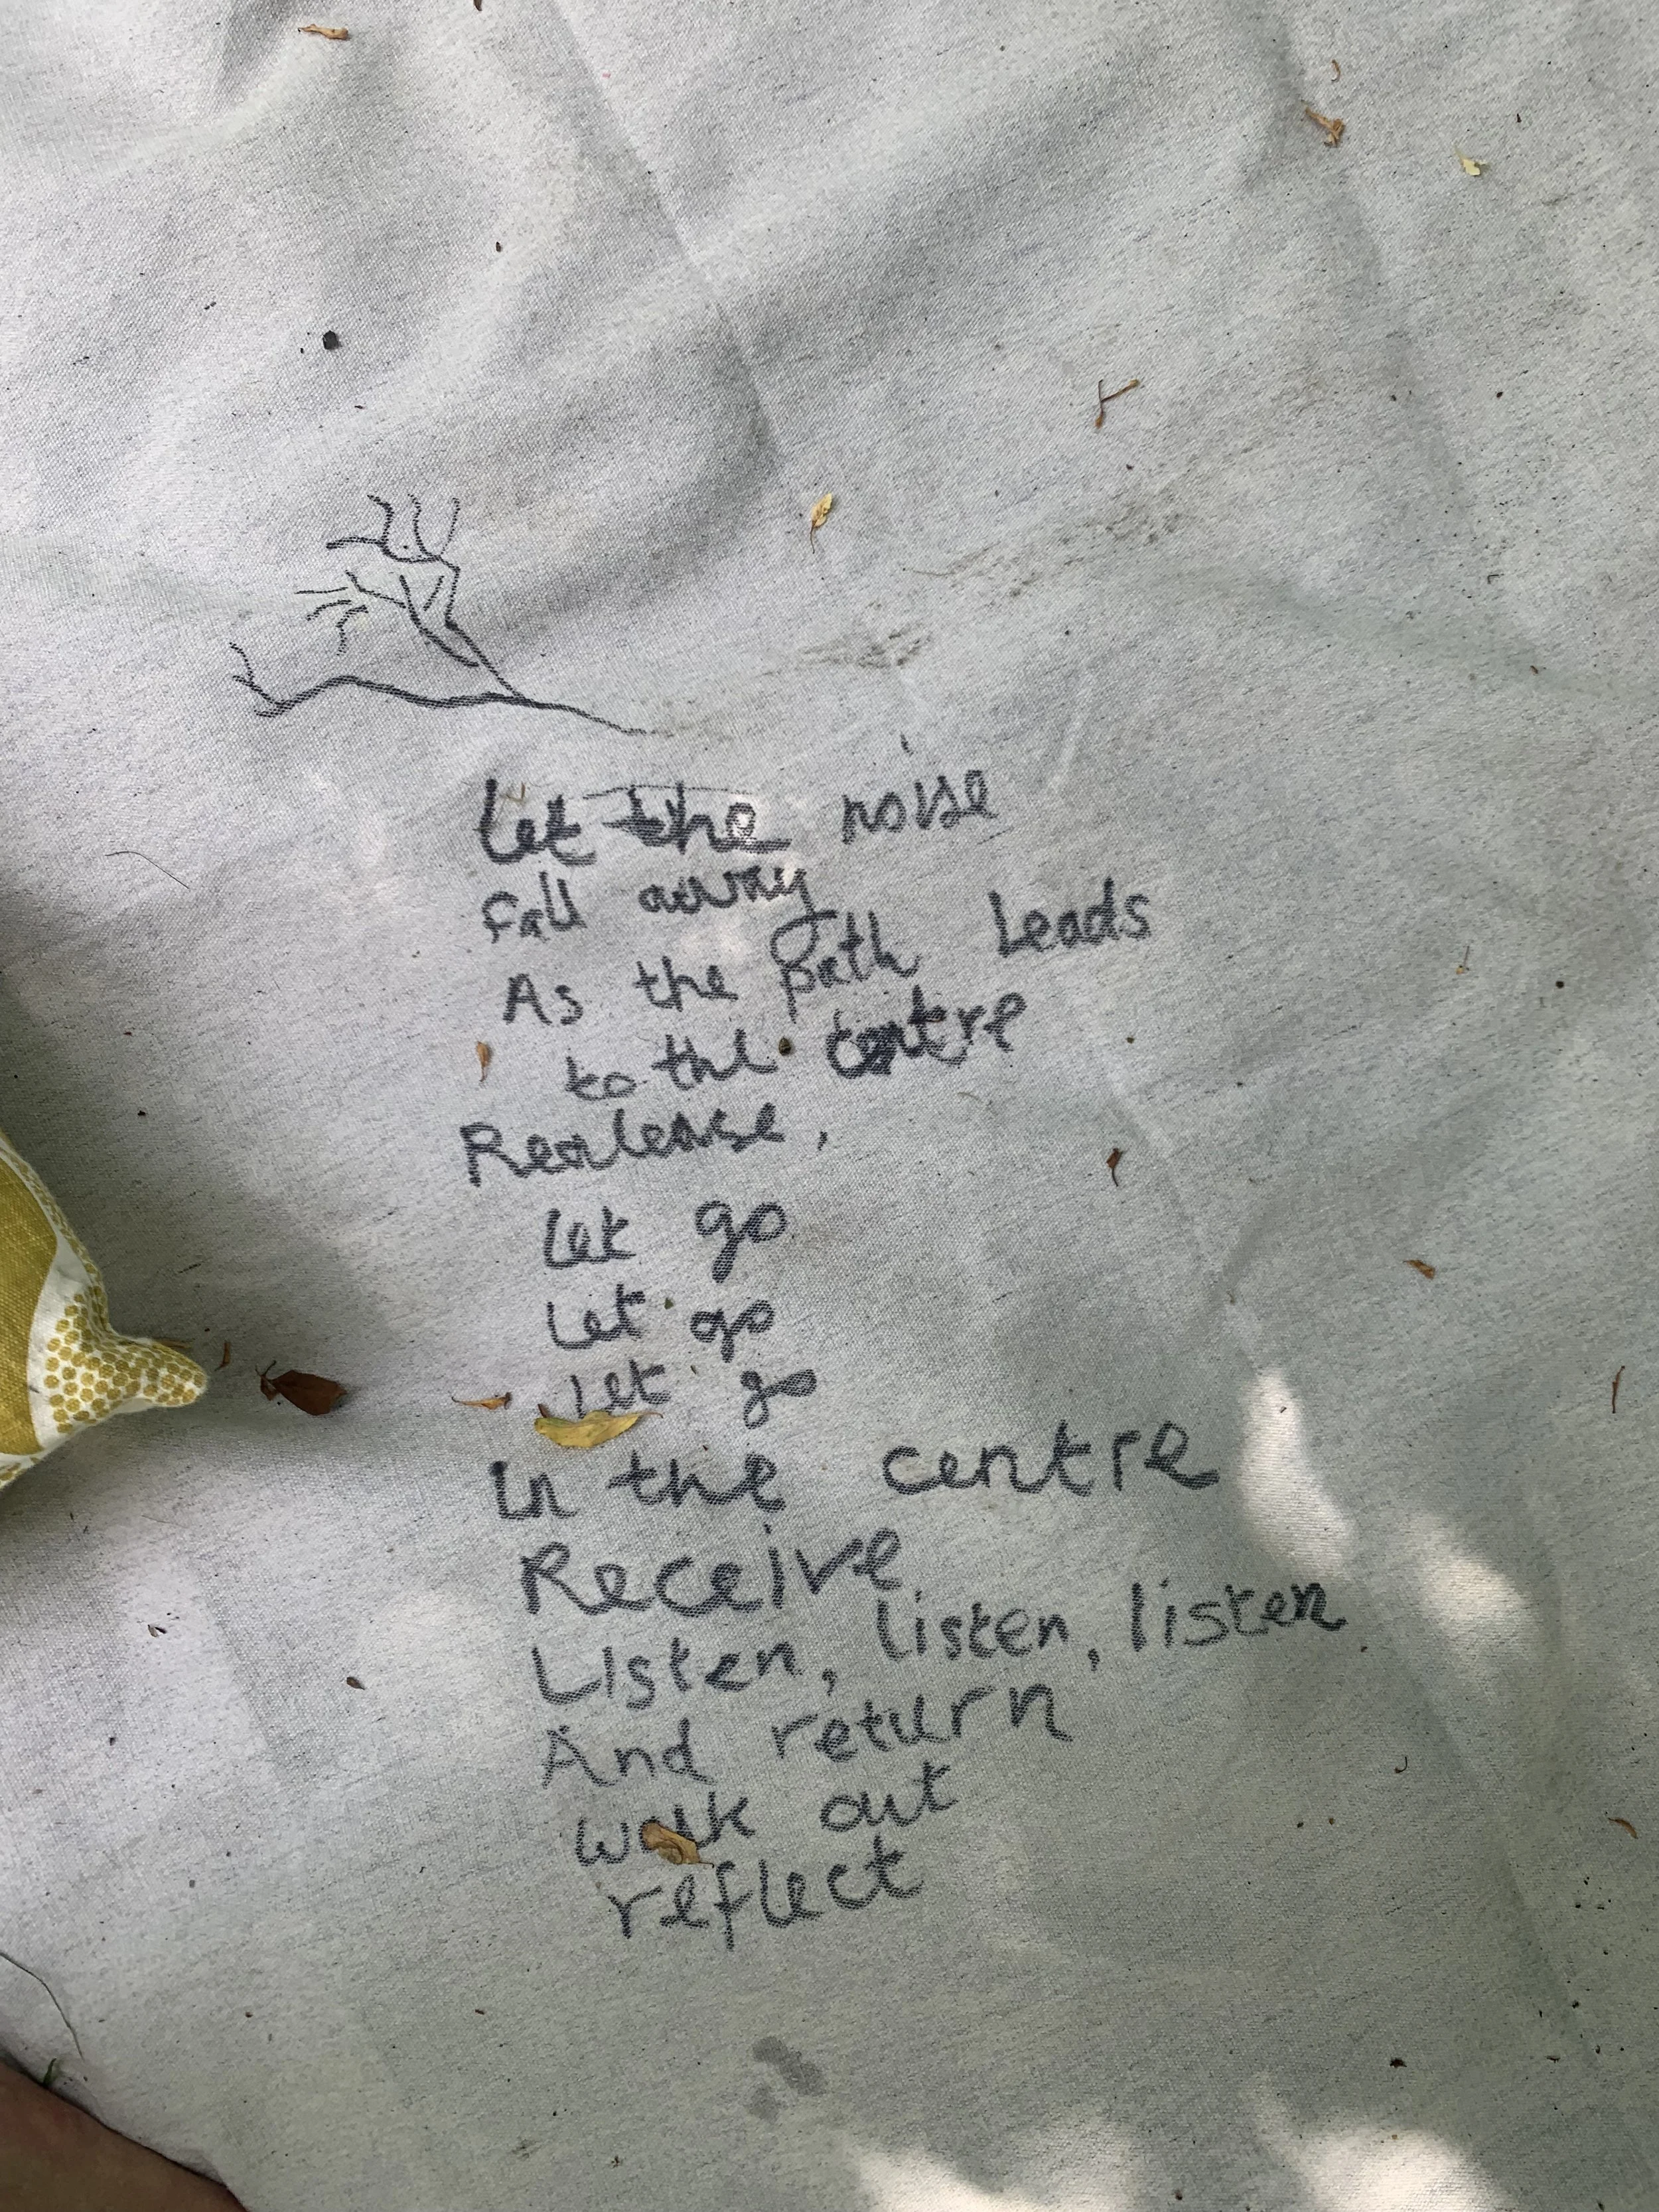 Let the noise
fall away
As the path leads
to the centre
Realease,
let go
Let go
Let go
In the centre
Receive
Listen, listen, listen
And return
walk out
reflect